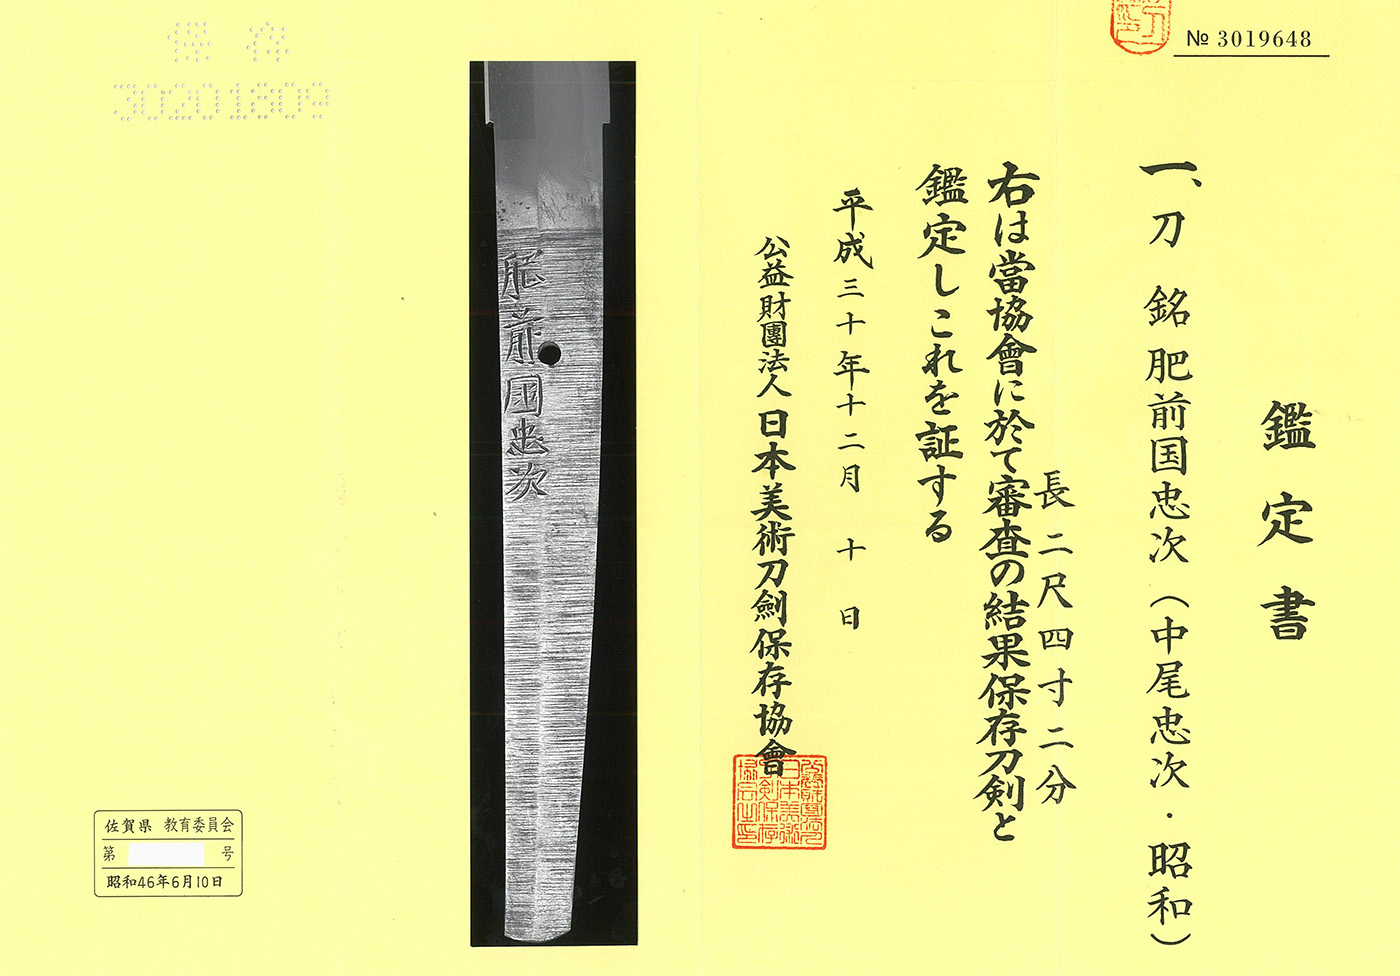 № 3019648
鑑定書
一、刀 銘 肥前国忠次（中尾忠次・昭和）
長 二尺四寸二分
右は當協會に於て審査の結果保存刀剣と
鑑定しこれを証する
平成三十年十二月 十 日
公益財團法人 日本美術刀劍保存協會
肥前國忠次
保存
30201809
佐賀県 教育委員会
第 号
昭和46年6月10日